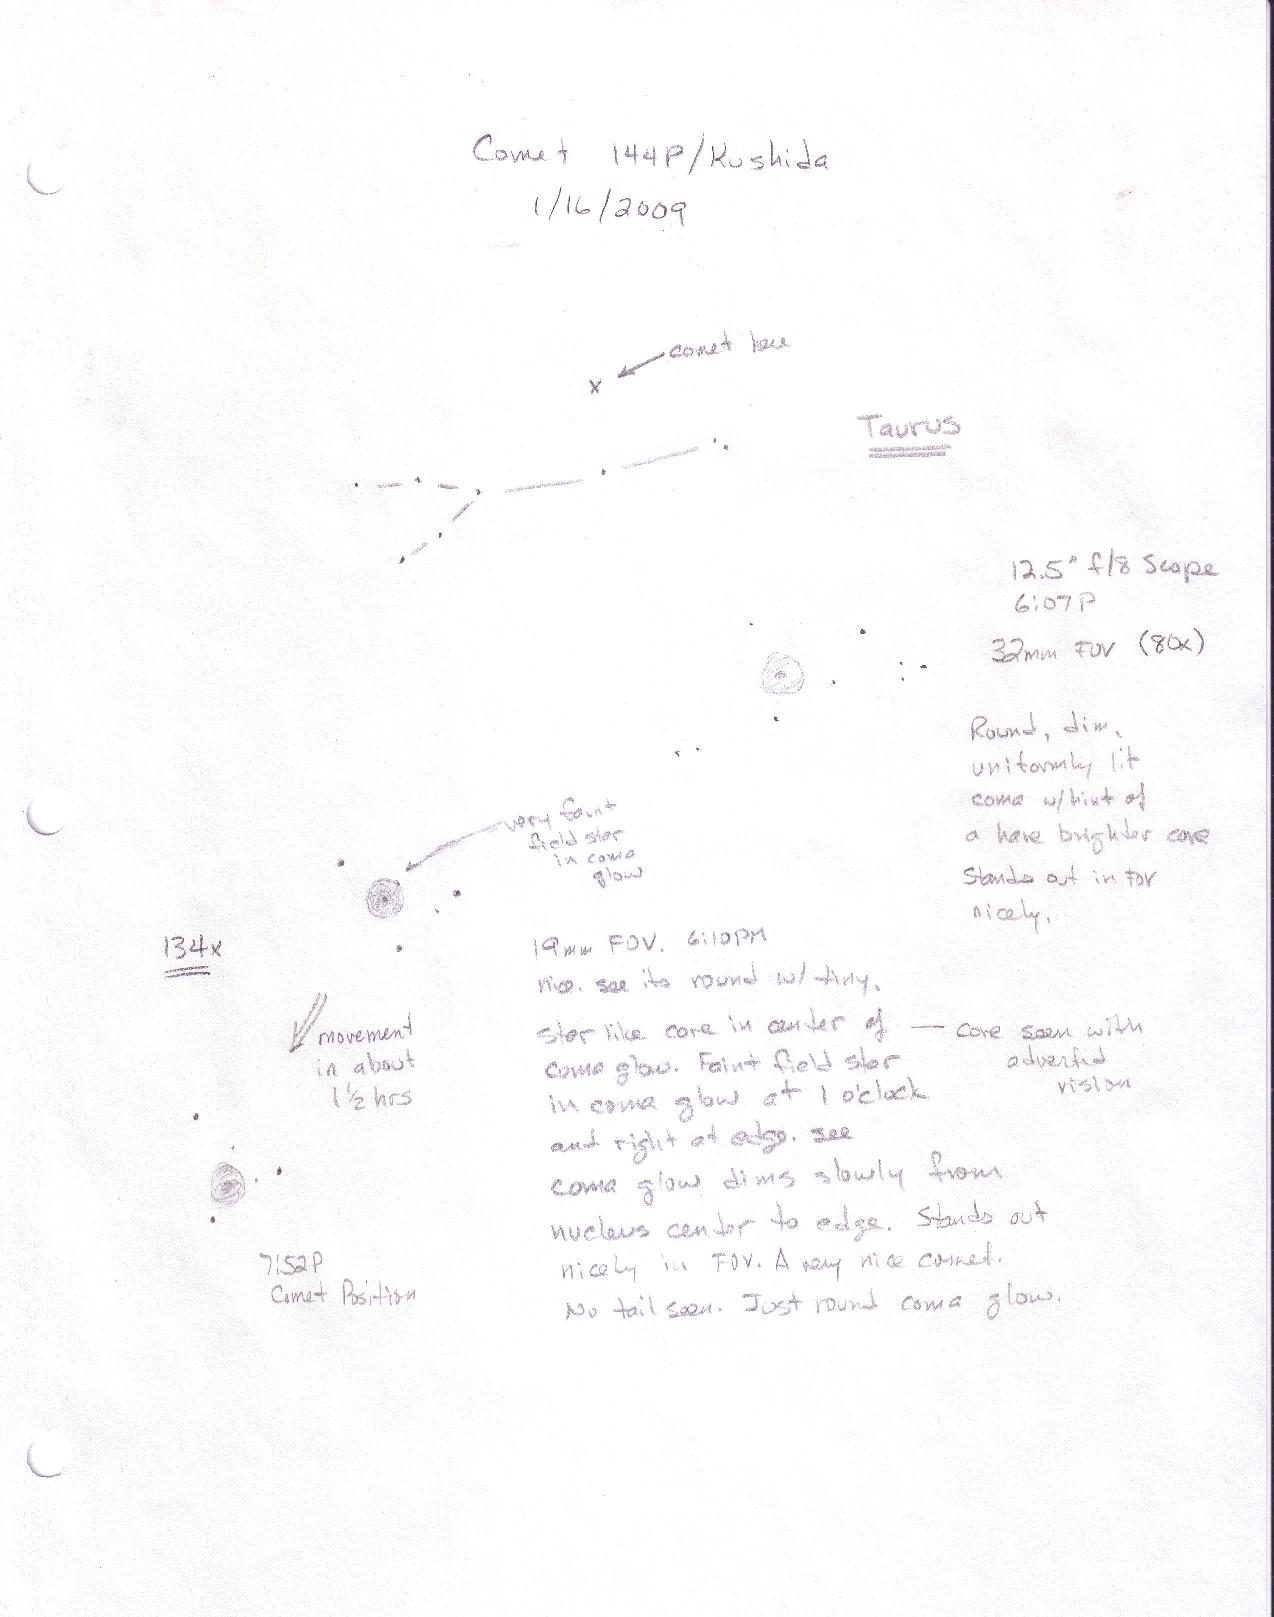 Comet 144P/Kushida
1/16/2009
comet here
Taurus
12.5" f/8 Scope
6:07P
32mm FOV (80x)
Round, dim,
uniformly lit
coma w/hint of
a hare brighter core
Stands out in FOV
nicely.
very faint
field star
in coma
glow
134x
19mm FOV. 6:10PM
nice. see its round w/ tiny,
star like core in center of — core seen with
adverted
vision
coma glow. Faint field star
in coma glow at 1 o'clock
and right at edge. see
coma glow dims slowly from
nucleus center to edge. Stands out
nicely in FOV. A very nice comet.
No tail seen. Just round coma glow.
movement
in about
1 1/2 hrs
7:52P
Comet Position